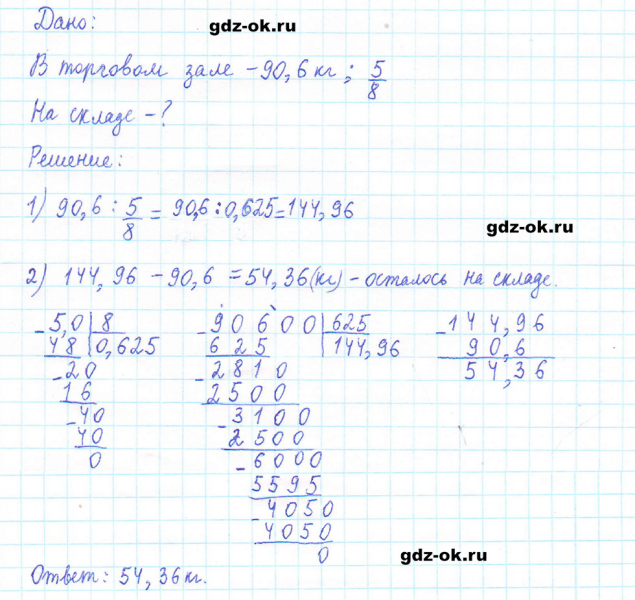 Дано:
gdz-ok.ru
В торговом зале – 90,6 кг; 5/8
На складе – ?
Решение:
1) 90,6 : 5/8 = 90,6 : 0,625 = 144,96
gdz-ok.ru
2) 144,96 – 90,6 = 54,36 (кг) – осталось на складе.
– 5,0 | 8
48 | 0,625
– 20
16
– 40
40
0
– 90600 | 625
625 | 144,96
– 2810
2500
– 3100
2500
– 6000
5595
– 4050
4050
0
– 144,96
90,6
54,36
gdz-ok.ru
Ответ: 54,36 кг.